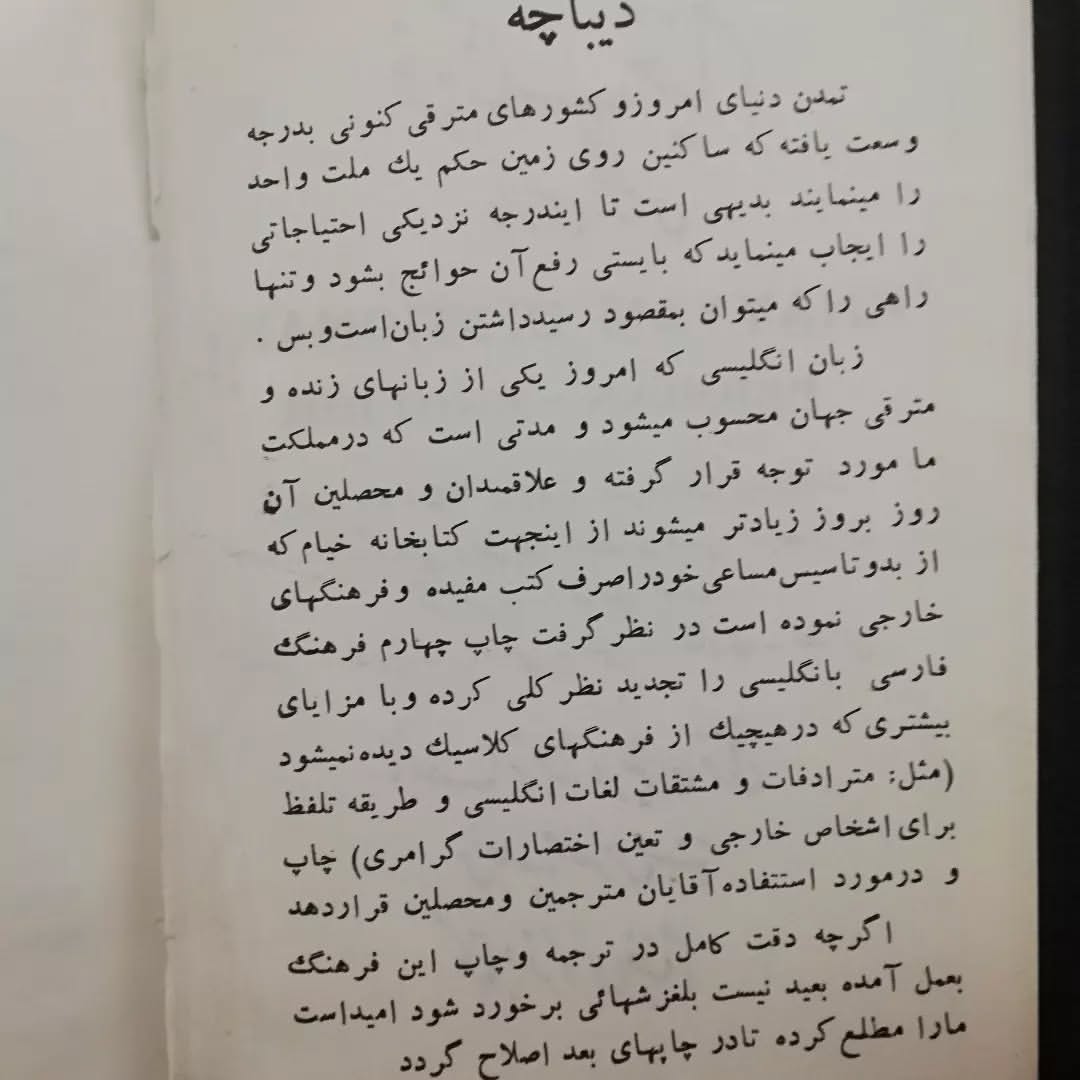 دیباچه
تمدن دنیای امروزو کشورهای مترقی کنونی بدرجه
وسعت یافته که ساکنین روی زمین حکم یك ملت واحد
را مینمایند بدیهی است تا ایندرجه نزدیکی احتیاجاتی
را ایجاب مینماید که بایستی رفع آن حوائج بشود و تنها
راهی را که میتوان بمقصود رسید داشتن زبان است و بس .
زبان انگلیسی که امروز یکی از زبانهای زنده و
مترقی جهان محسوب میشود و مدتی است که در مملکت
ما مورد توجه قرار گرفته و علاقمدان و محصلین آن
روز بروز زیادتر میشوند از اینجهت کتابخانه خیام که
از بدو تاسیس مساعی خود را صرف کتب مفیده و فرهنگهای
خارجی نموده است در نظر گرفت چاپ چهارم فرهنگ
فارسی بانگلیسی را تجدید نظر کلی کرده و با مزایای
بیشتری که در هیچیك از فرهنگهای کلاسیك دیده نمیشود
(مثل: مترادفات و مشتقات لغات انگلیسی و طریقه تلفظ
برای اشخاص خارجی و تعین اختصارات گرامری) چاپ
و در مورد استتفاده آقایان مترجمین و محصلین قرار دهد
اگرچه دقت کامل در ترجمه و چاپ این فرهنگ
بعمل آمده بعید نیست بلغزشهائی برخورد شود امید است
ما را مطلع کرده تا در چاپهای بعد اصلاح گردد